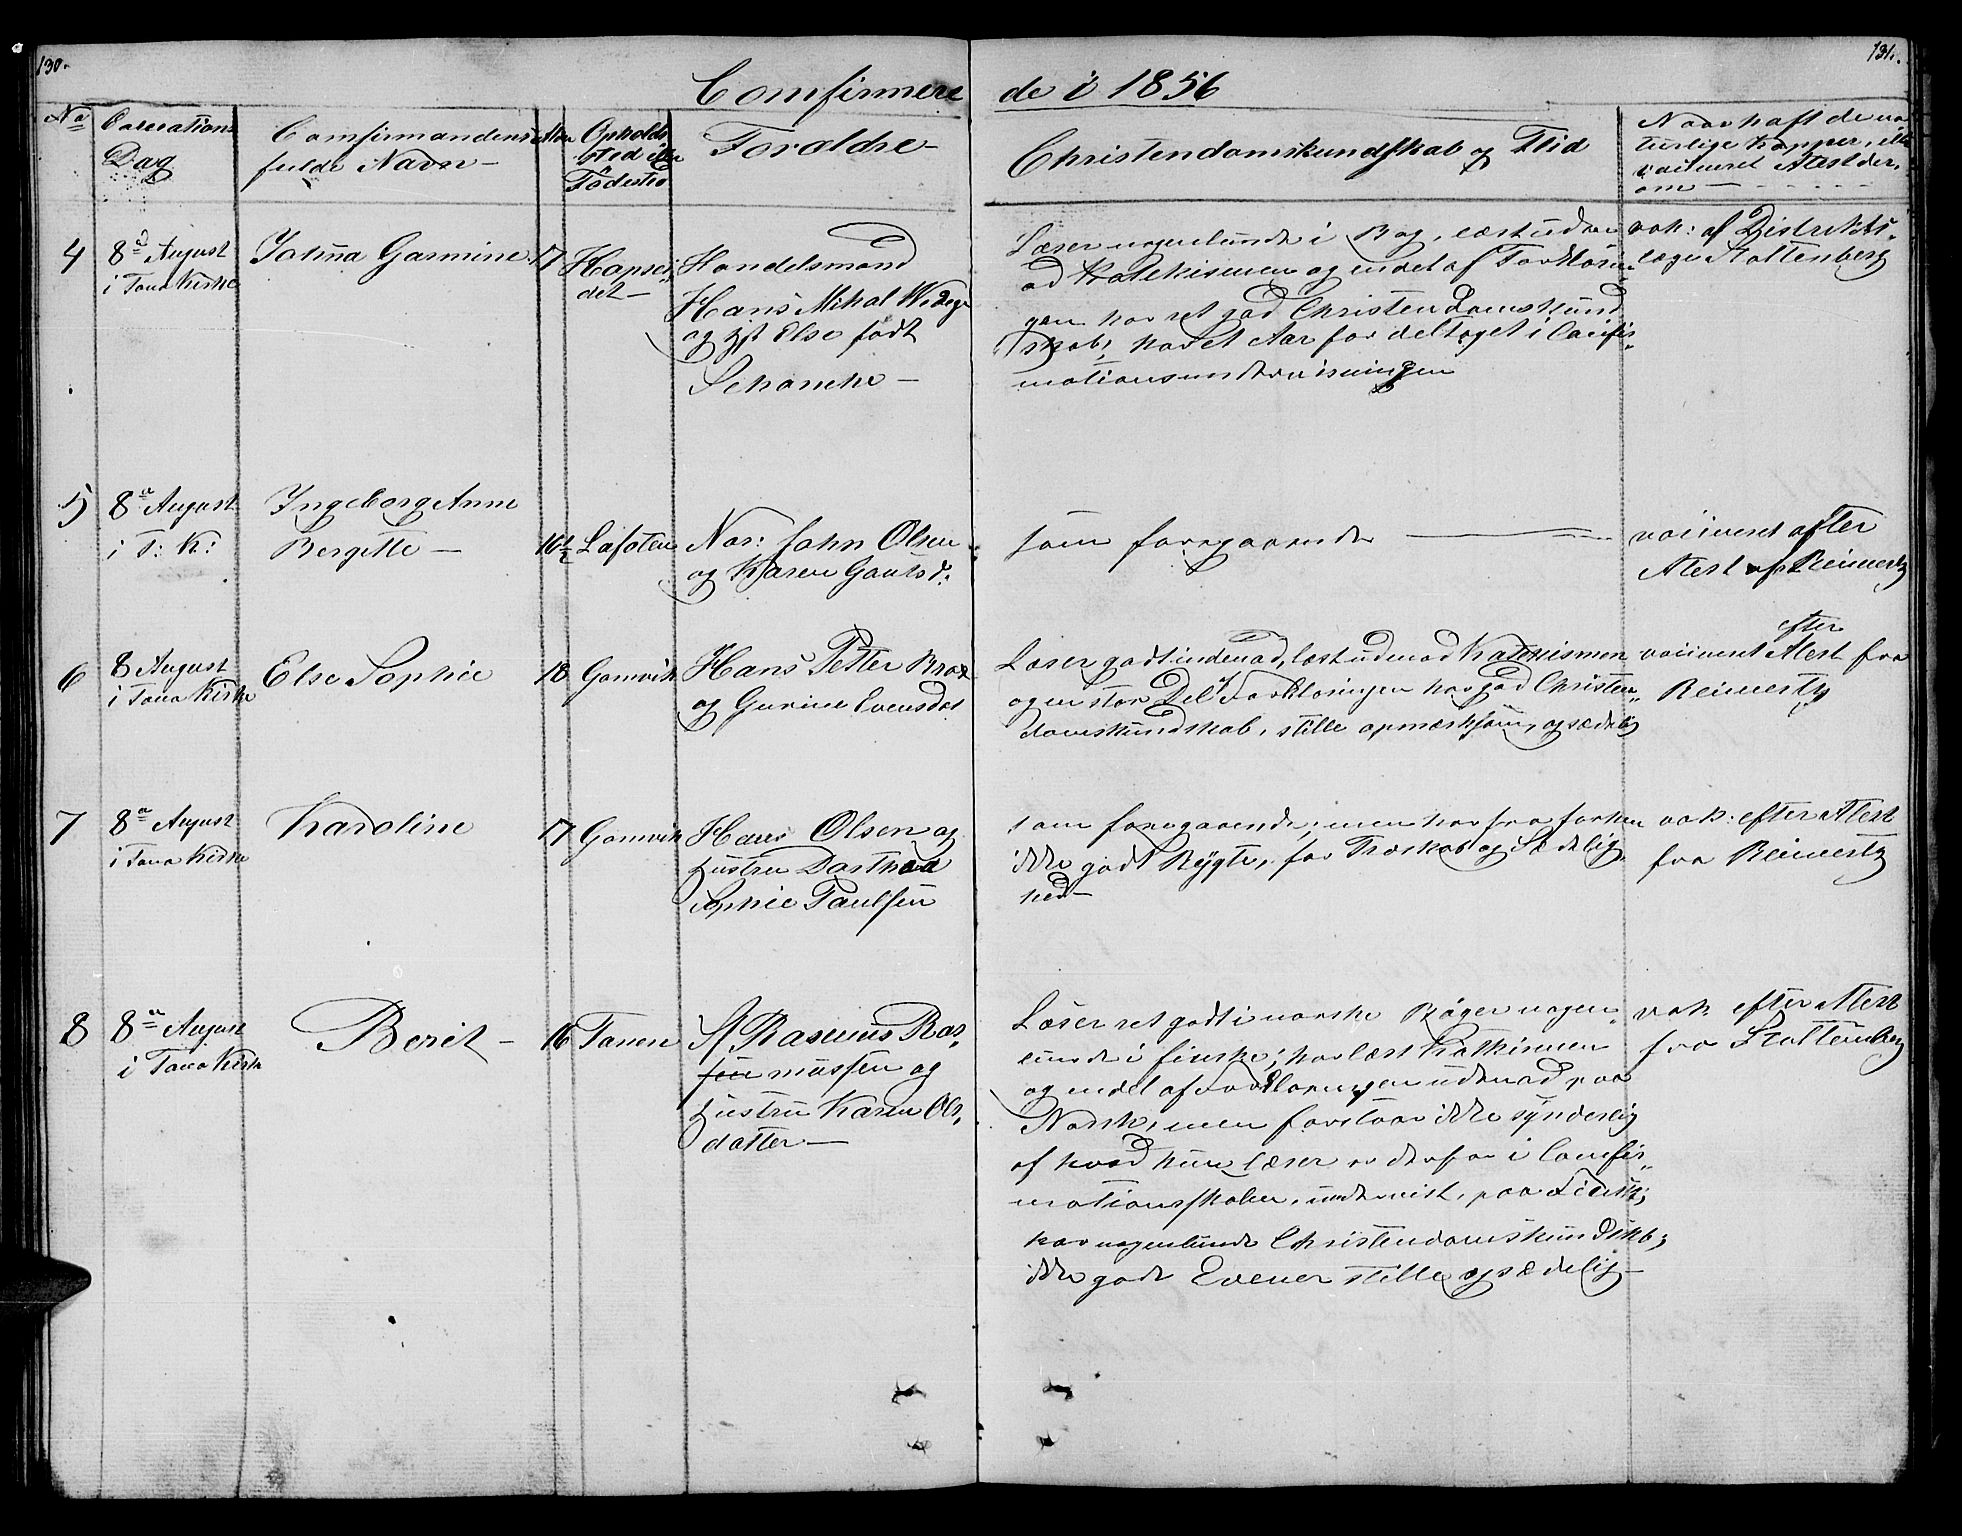 130.
131.
Comfirmere de i 1856
No
Dag
Comfirmandens
fulde Navn -
Alder
Opholds
sted eller
Födested
Forældre -
Christendomskundskab og Flid
Naar haft de na
turlige Kopper, eller
vaccineret Atest der
om -
4
8de August
i Tana Kirke
17
Hopsei
det -
Handelsmand
Hans Mikal
og Hst Else født
Schanche -
Læser nogenlunde i Bog, læst uden
ad Katekismen og endel af Forklarin
gen har ret god Christendomskund
skab, har et Aar før deltaget i Confir
mationsundervisningen
vak: af Distrikts
læge Stoltenberg
5
8de August
i T: K:
Ingeborg Anne
Bergitte -
16½
Lafoten
Nor: John Olsen
og Karen Gautsd:
som foregaaende
vaccineret efter
Atest af Reinertz
6
8 August
i Tana Kirke
Else Sophie
18
Gamvik
Hans Petter Brox
og Gurine Evensdat
Læser godt indenad, læst udenad Katekismen
og en stor Del af Forklaringen har god Christen
domskundskab, stille opmærksom, og sædelig
efter
vaccineret Atest fra
Reinertz
7
8de August
i Tana Kirke
Karoline
17
Gamvik
Hans Olsen og
Hustru Dorthea
Sophie Paulsen
som foregaaende; men har fra forhen
ikke godt Rygte, for Troskab og Sædelig
hed -
vak: efter Atest
fra Reinertz
8
8de August
i Tana Kirke
Berit -
16
Tanen
Rasmus Ras
sen mussen og
Hustru Karen Ols
datter -
Læser ret godt i norske Bøger nogen
lunde i finske; har læst Katkismen
og endel af Forklaringen udenad paa
Norsk, men forstaar ikke synderlig
af hvad hun læser er derfor i Confir
mationsskolen, undervist, paa Finsk;
har nogenlunde Christendomskundskb;
ikke gode Evner stille og sædelig -
vak efter Atest
fra Stoltenberg